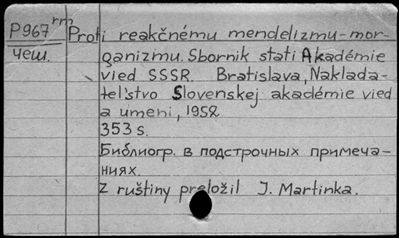 P967 rm Proti reakčnému mendelizmu-mor-
чеш. ganizmu. Sbornik stati Akadémie
vied SSSR. Bratislava, Naklada-
teľstvo Slovenskej akadémie vied
a umeni, 1952
353 s.
Библиогр. в подстрочных примеча-
ниях.
Z ruštiny preložil J. Martinka.